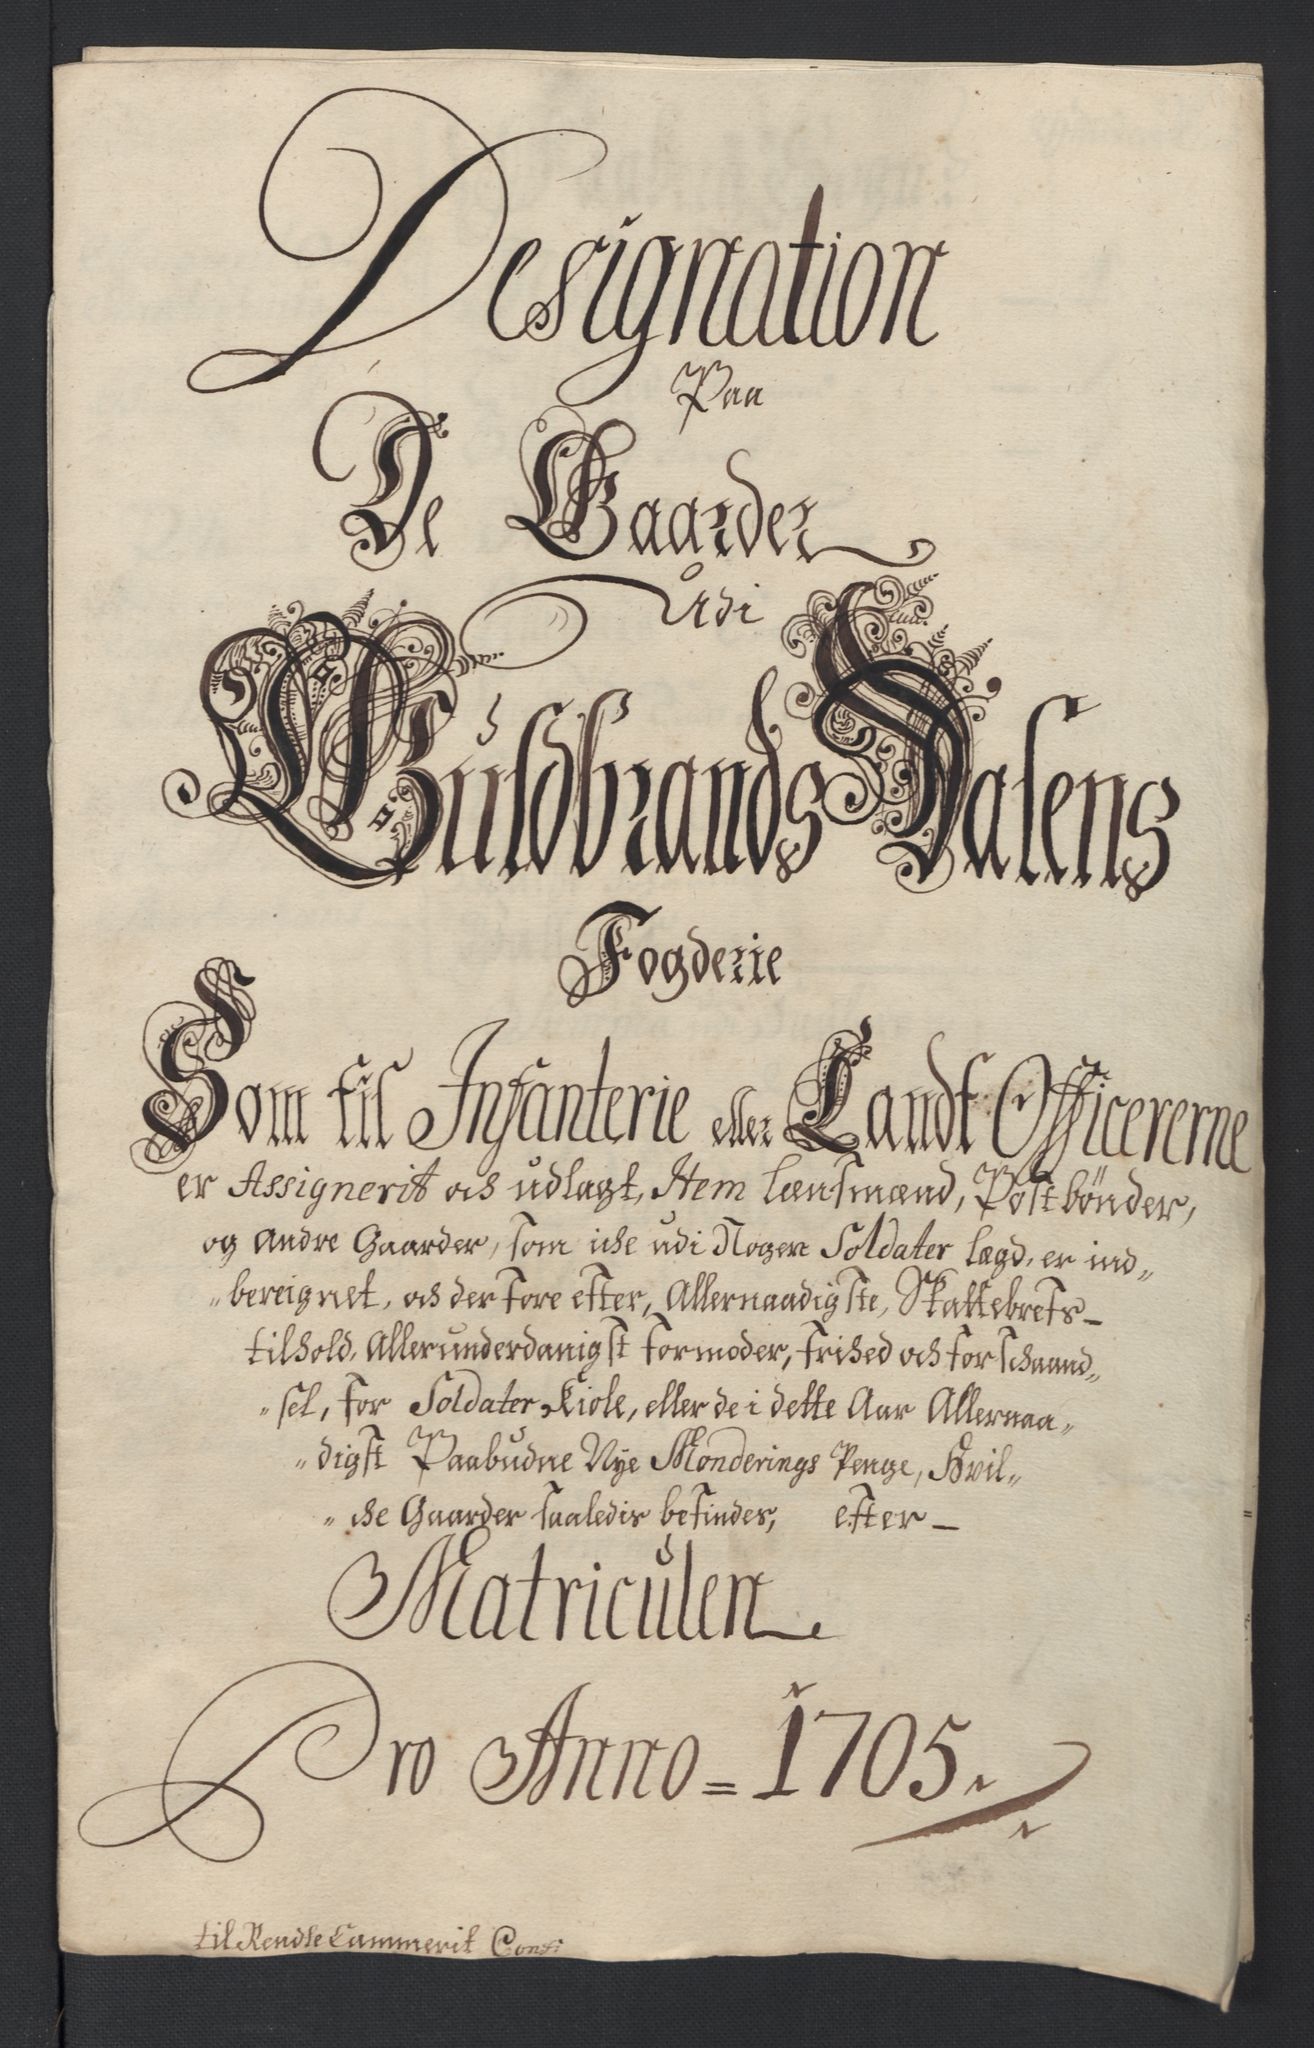 Designation
Paa
De Gaarder
Udi
Guldbrands Dalens
Fogderie
Som til Infanterie eller Landt Officererne
er Assignerit och udlagt, Item Lænsmænd, Postbønder,
og Andre Gaarder, som iche udi Nogen Soldater lægd, er ind„
„bereignet, och der fore efter, Allernaadigste, Skattebrefs–
tilhold, Allerunderdanigst formoder, frihed och forschaand„
„sel, for Soldater Kiole, eller de i dette Aar Allernaa„
„digst Paabudne Nye Monderings Penge, Hvil„
„che Gaarder saaledis befindes, efter–
Matriculen
Pro Anno = 1705.
til Rendte Cammerit